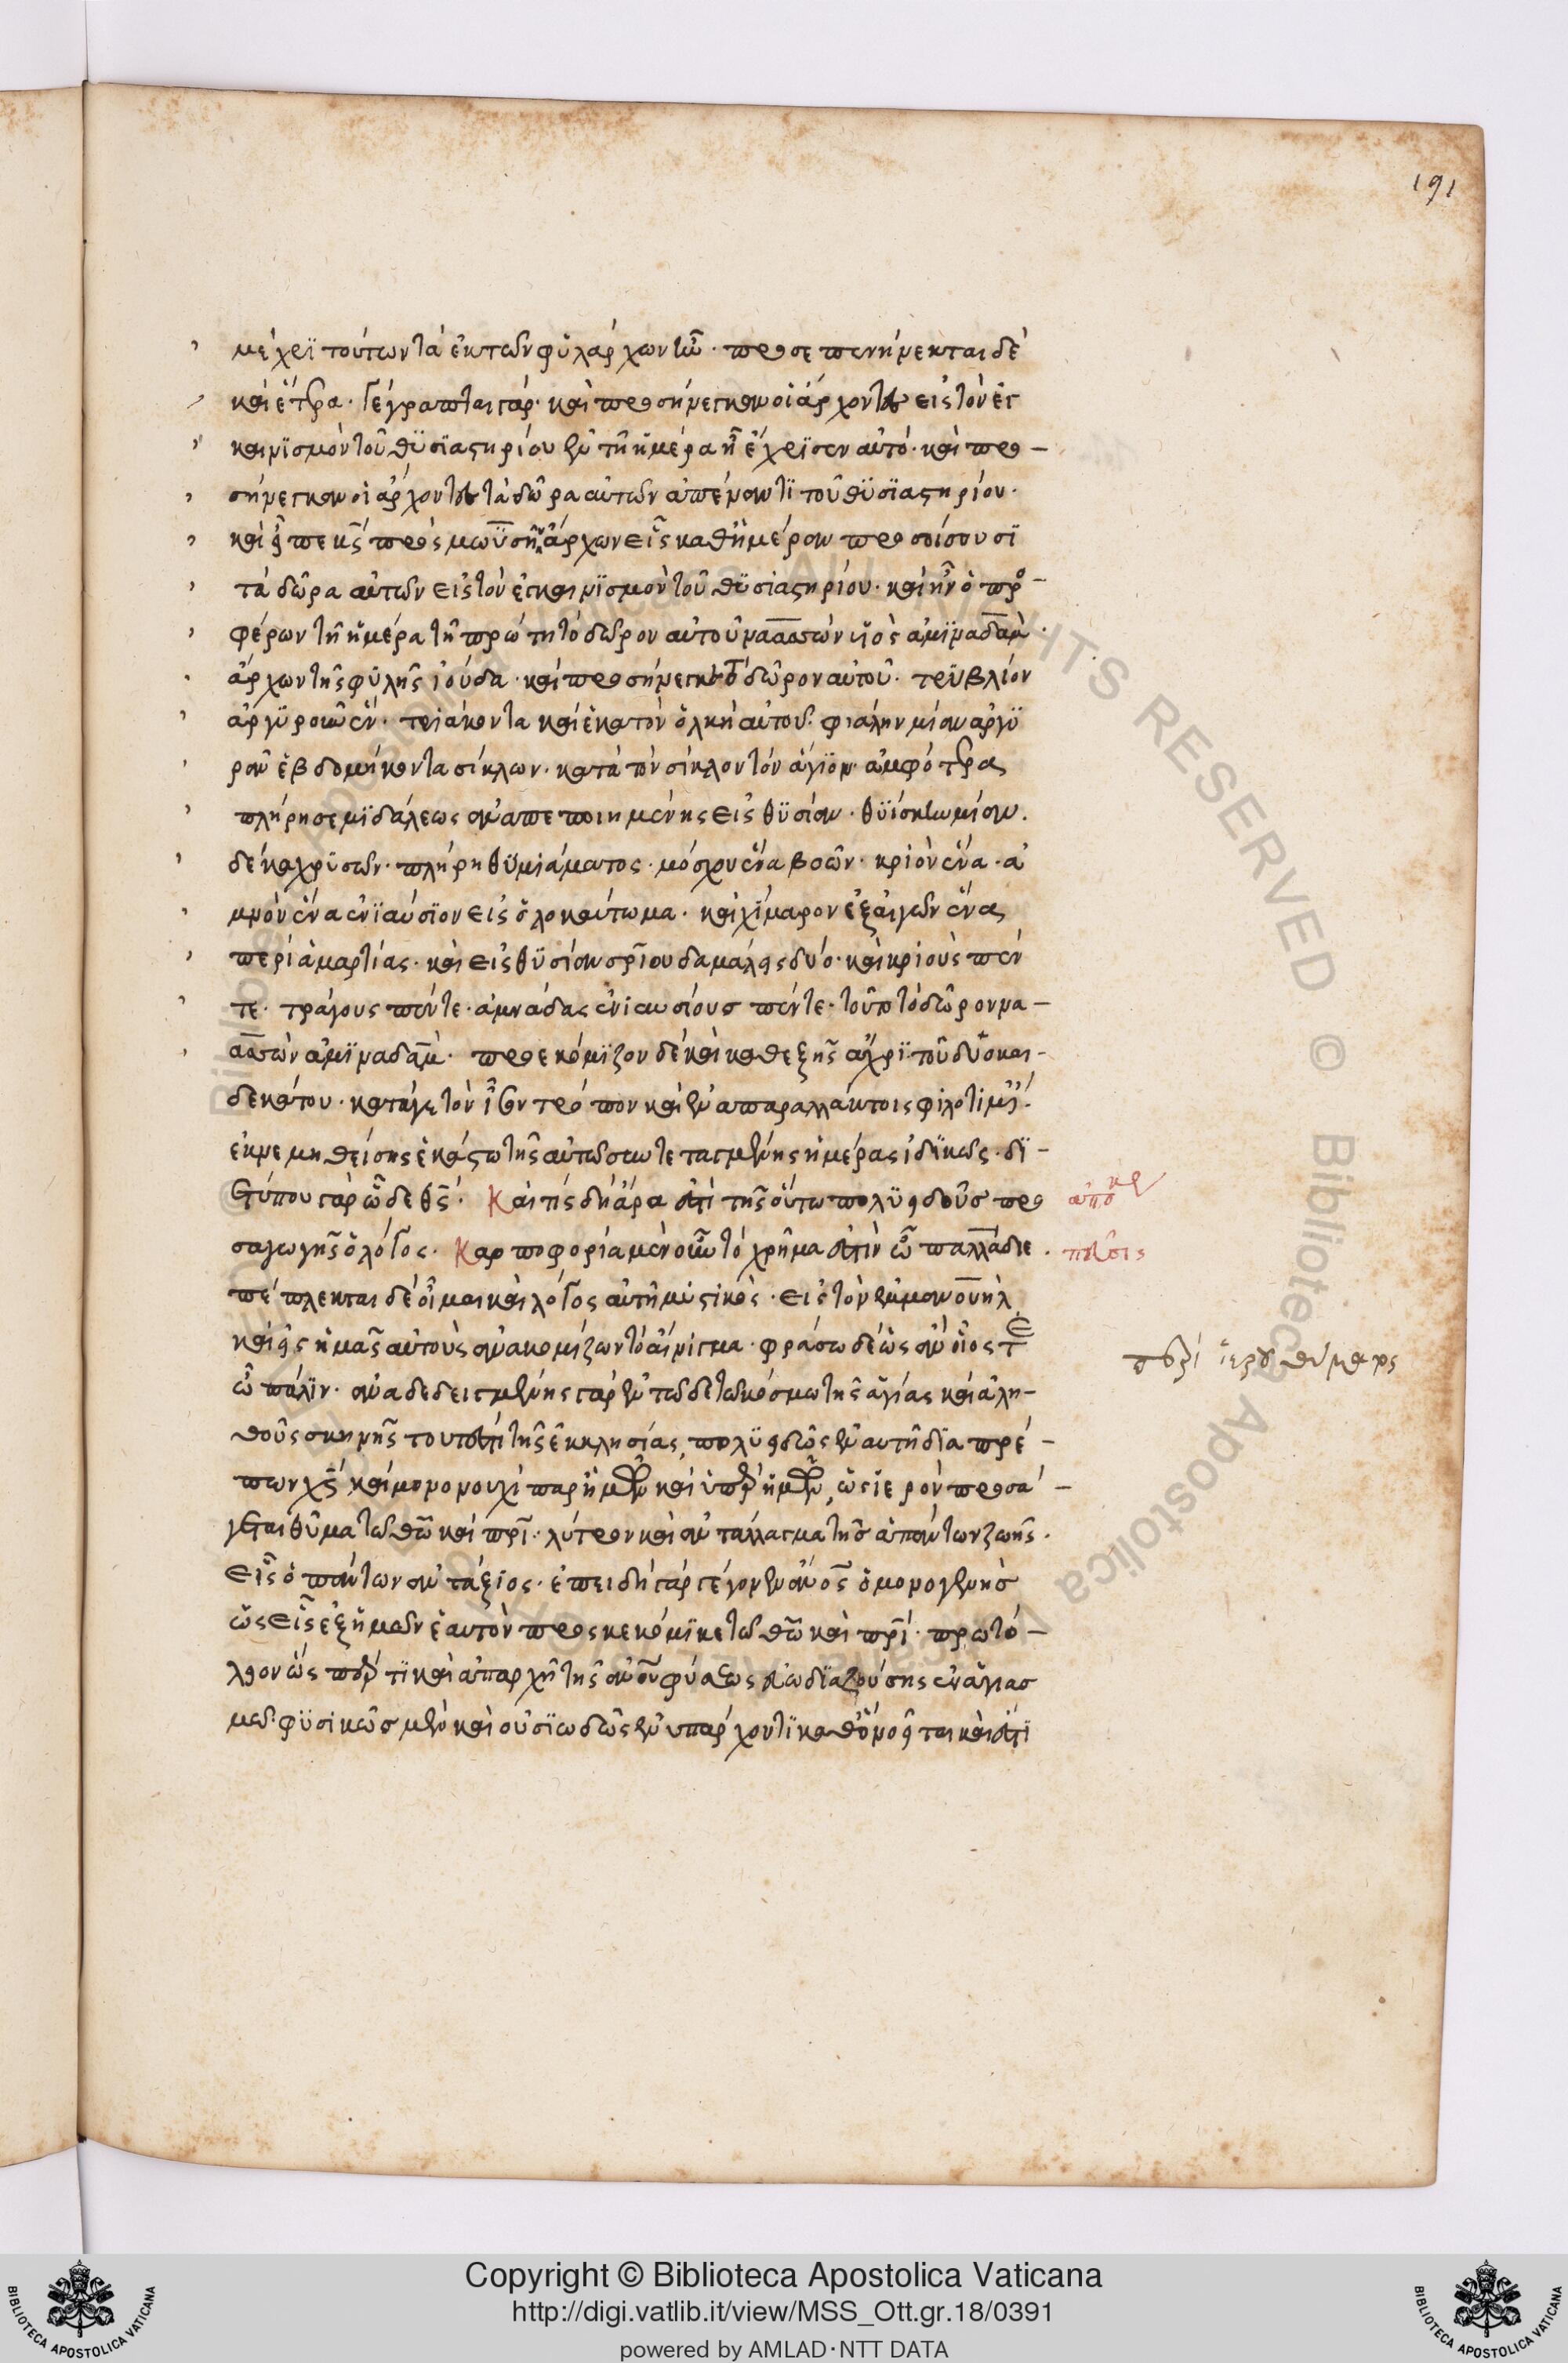 191
μέχρι τούτων τὰ ἐκ τῶν φυλάρχων ἦν· προσεπενήνεκται δὲ
καὶ ἕτερα· γέγραπται γάρ· καὶ προσήνεγκαν οἱ ἄρχοντες εἰς τὸν ἐγ
καινισμὸν τοῦ θυσιαστηρίου ἐν τῇ ἡμέρα ᾗ ἔχρισεν αὐτό· καὶ προ-
σήνεγκαν οἱ ἄρχοντες τὰ δῶρα αὐτῶν ἀπέναντι τοῦ θυσιαστηρίου·
καὶ εἶπε κς πρὸς μωϋσῆν ἄρχων εἷς καθ' ἡμέραν προσοίσουσι
τὰ δῶρα αὐτῶν εἰς τὸν ἐγκαινισμὸν τοῦ θυσιαστηρίου· καὶ ἦν ὁ προσ-
φέρων τῇ ἡμέρα τῇ πρώτη τὸ δῶρον αὐτοῦ ναασσὼν υἱὸς ἀμιναδὰμ·
ἄρχων τῆς φυλῆς ἰούδα· καὶ προσήνεγκε τὸ δῶρον αὐτοῦ· τρυβλίον
ἀργυροῦν ἕν· τριάκοντα καὶ ἑκατὸν ὁλκὴ αὐτοῦ· φιάλην μίαν ἀργυ
ρᾶν ἑβδομήκοντα σίκλων· κατὰ τὸν σίκλον τὸν ἅγιον· ἀμφότερα
πλήρη σεμιδάλεως ἀναπεποιημένης εἰς θυσίαν· θυΐσκην μίαν·
δέκα χρυσῶν· πλήρη θυμιάματος· μόσχον ἕνα βοῶν· κριὸν ἕνα· ἀ
μνὸν ἕνα ἐνιαύσιον εἰς ὁλοκαύτωμα· καὶ χίμαρον ἐξ αἰγῶν ἕνα
περὶ ἁμαρτίας· καὶ εἰς θυσίαν σρίου δαμάλεις δύο· καὶ κριοὺς πέν
τε· τράγους πέντε· ἀμνάδας ἐνιαυσίους πέντε· τοῦτο τὸ δῶρον να-
ασσὼν ἀμιναδάμ· προσεκόμιζον δὲ καὶ καθεξῆς ἄχρι τοῦ δυοκαι-
δεκάτου· κατά γε τὸν ἴσον τρόπον καὶ ἐν ἀπαραλλάκτοις φιλοτιμί·
ἐκνεμηθείσης ἑκάστω τῆς αὐτῶ συντεταγμένης ἡμέρας ἰδικῶς· δι-
ετύπου γὰρ ὧδε θς· Καὶ τίς δὴ ἄρα ἐστὶ τῆς οὕτω πολυειδοῦς προ
σαγωγῆς ὁ λόγος· Καρποφορία μὲν οὖν τὸ χρῆμα ἐστὶν ὦ παλλάδιε·
πέπλεκται δὲ οἶμαι καὶ λόγος αὐτῇ μυστικὸς· εἰς τὸν ἐμμανουὴλ
καὶ εἰς ἡμᾶς αὐτοὺς ἀνακομίζων τὸ αἴνιγμα· φράσω δὲ ὡς ἂν οἷός τε
ὦ πάλιν· ἀναδεδειγμένης γὰρ ἐν τῶδε τῶ κόσμω τῆς ἁγίας καὶ ἀλη-
θοῦς σκηνῆς τουτέστι τῆς ἐκκλησίας, πολυειδῶς ἐν αὐτῇ διαπρέ-
πων χς καὶ μονονουχὶ παρ' ἡμῶν καὶ ὑπὲρ ἡμῶν, ὡς ἱερὸν προσά-
γεται θῦμα τῶ θῶ καὶ πρί· λύτρον καὶ ἀντάλλαγμα τῆς ἁπάντων ζωῆς·
εἷς ὁ πάντων ἀντάξιος· ἐπειδὴ γὰρ γέγονεν ανος ὁ μονογενὴς
ὡς εἷς ἐξ ἡμῶν ἑαυτὸν προσκεκόμικε τῶ θῶ καὶ πρί· πρωτό-
λεον ὥς πέρ τι καὶ ἀπαρχὴ τῆς ανου φύσεως εὐωδιαζούσης ἐν ἁγιασ
μῶ· φυσικῶς μὲν καὶ οὐσιωδῶς ἐνυπάρχοντι καθὸ νοεῖται καὶ ἐστὶ
ἀπό κρ
πεῦσις
περὶ ἱεροῦ θύματος
Copyright © Biblioteca Apostolica Vaticana
http://digi.vatlib.it/view/MSS_Ott.gr.18/0391
powered by AMLAD·NTT DATA